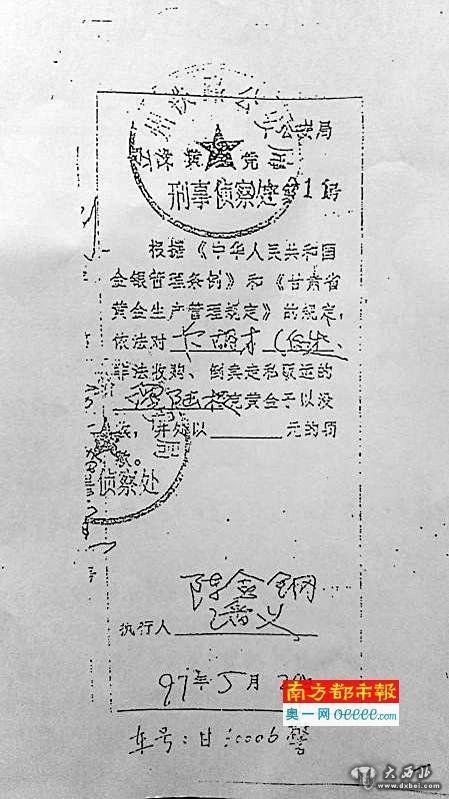 州铁路公安局
公安局
没收黄金凭
刑事侦察处
字第1号
根据《中华人民共和国
金银管理条例》和《甘肃省
黄金生产管理规定》的规定,
依法对
非法收购、倒卖走私贩运的
克黄金予以没
收,并处以______元的罚
款。
侦察处
陈金钢
执行人
97年5月
车号:甘:0006警
南方都市報
奥一网 oeeee.com
大西北
www.dxbei.com